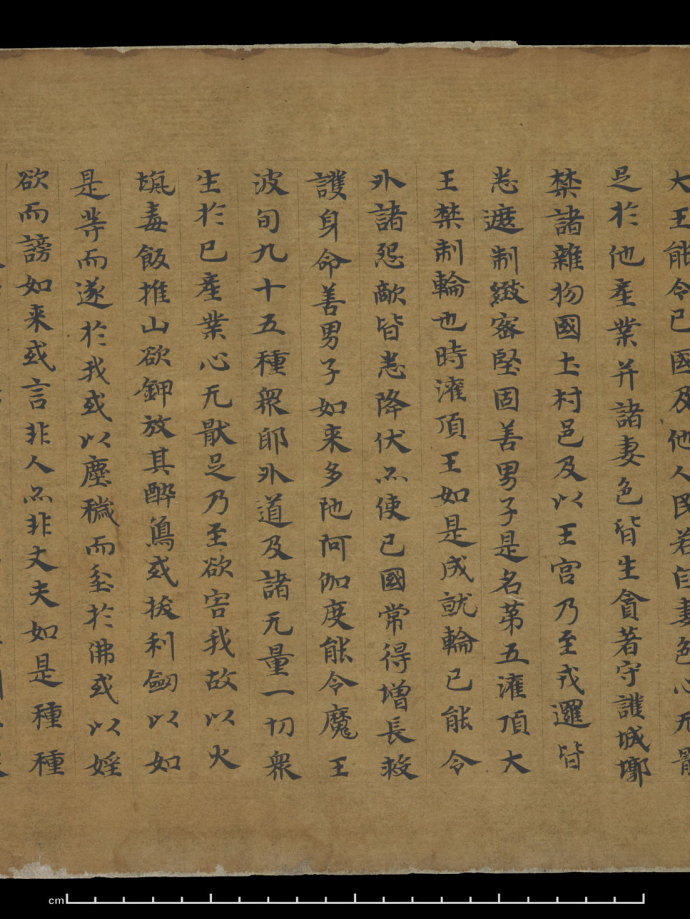 大王能令已國及他人民若自妻色心无猒
足於他產業并諸妻色皆生貪著守護城墎
禁諸雜物國土村邑及以王宮乃至戎邏皆
悉遮制緻密堅固善男子是名第五灌頂大
王禁制輪也時灌頂王如是成就輪已能令
外諸怨敵皆悉降伏亦使已國常得增長救
護身命善男子如来多陁阿伽度能令魔王
波旬九十五種衆耶外道及諸无量一切衆
生於已產業心无猒足乃至欲害我故以火
坑毒飯推山欲鉀放其醉鳥或拔利劎以如
是等而遂於我或以塵穢而坌於佛或以婬
欲而謗如来或言非人亦非丈夫如是種種
cm